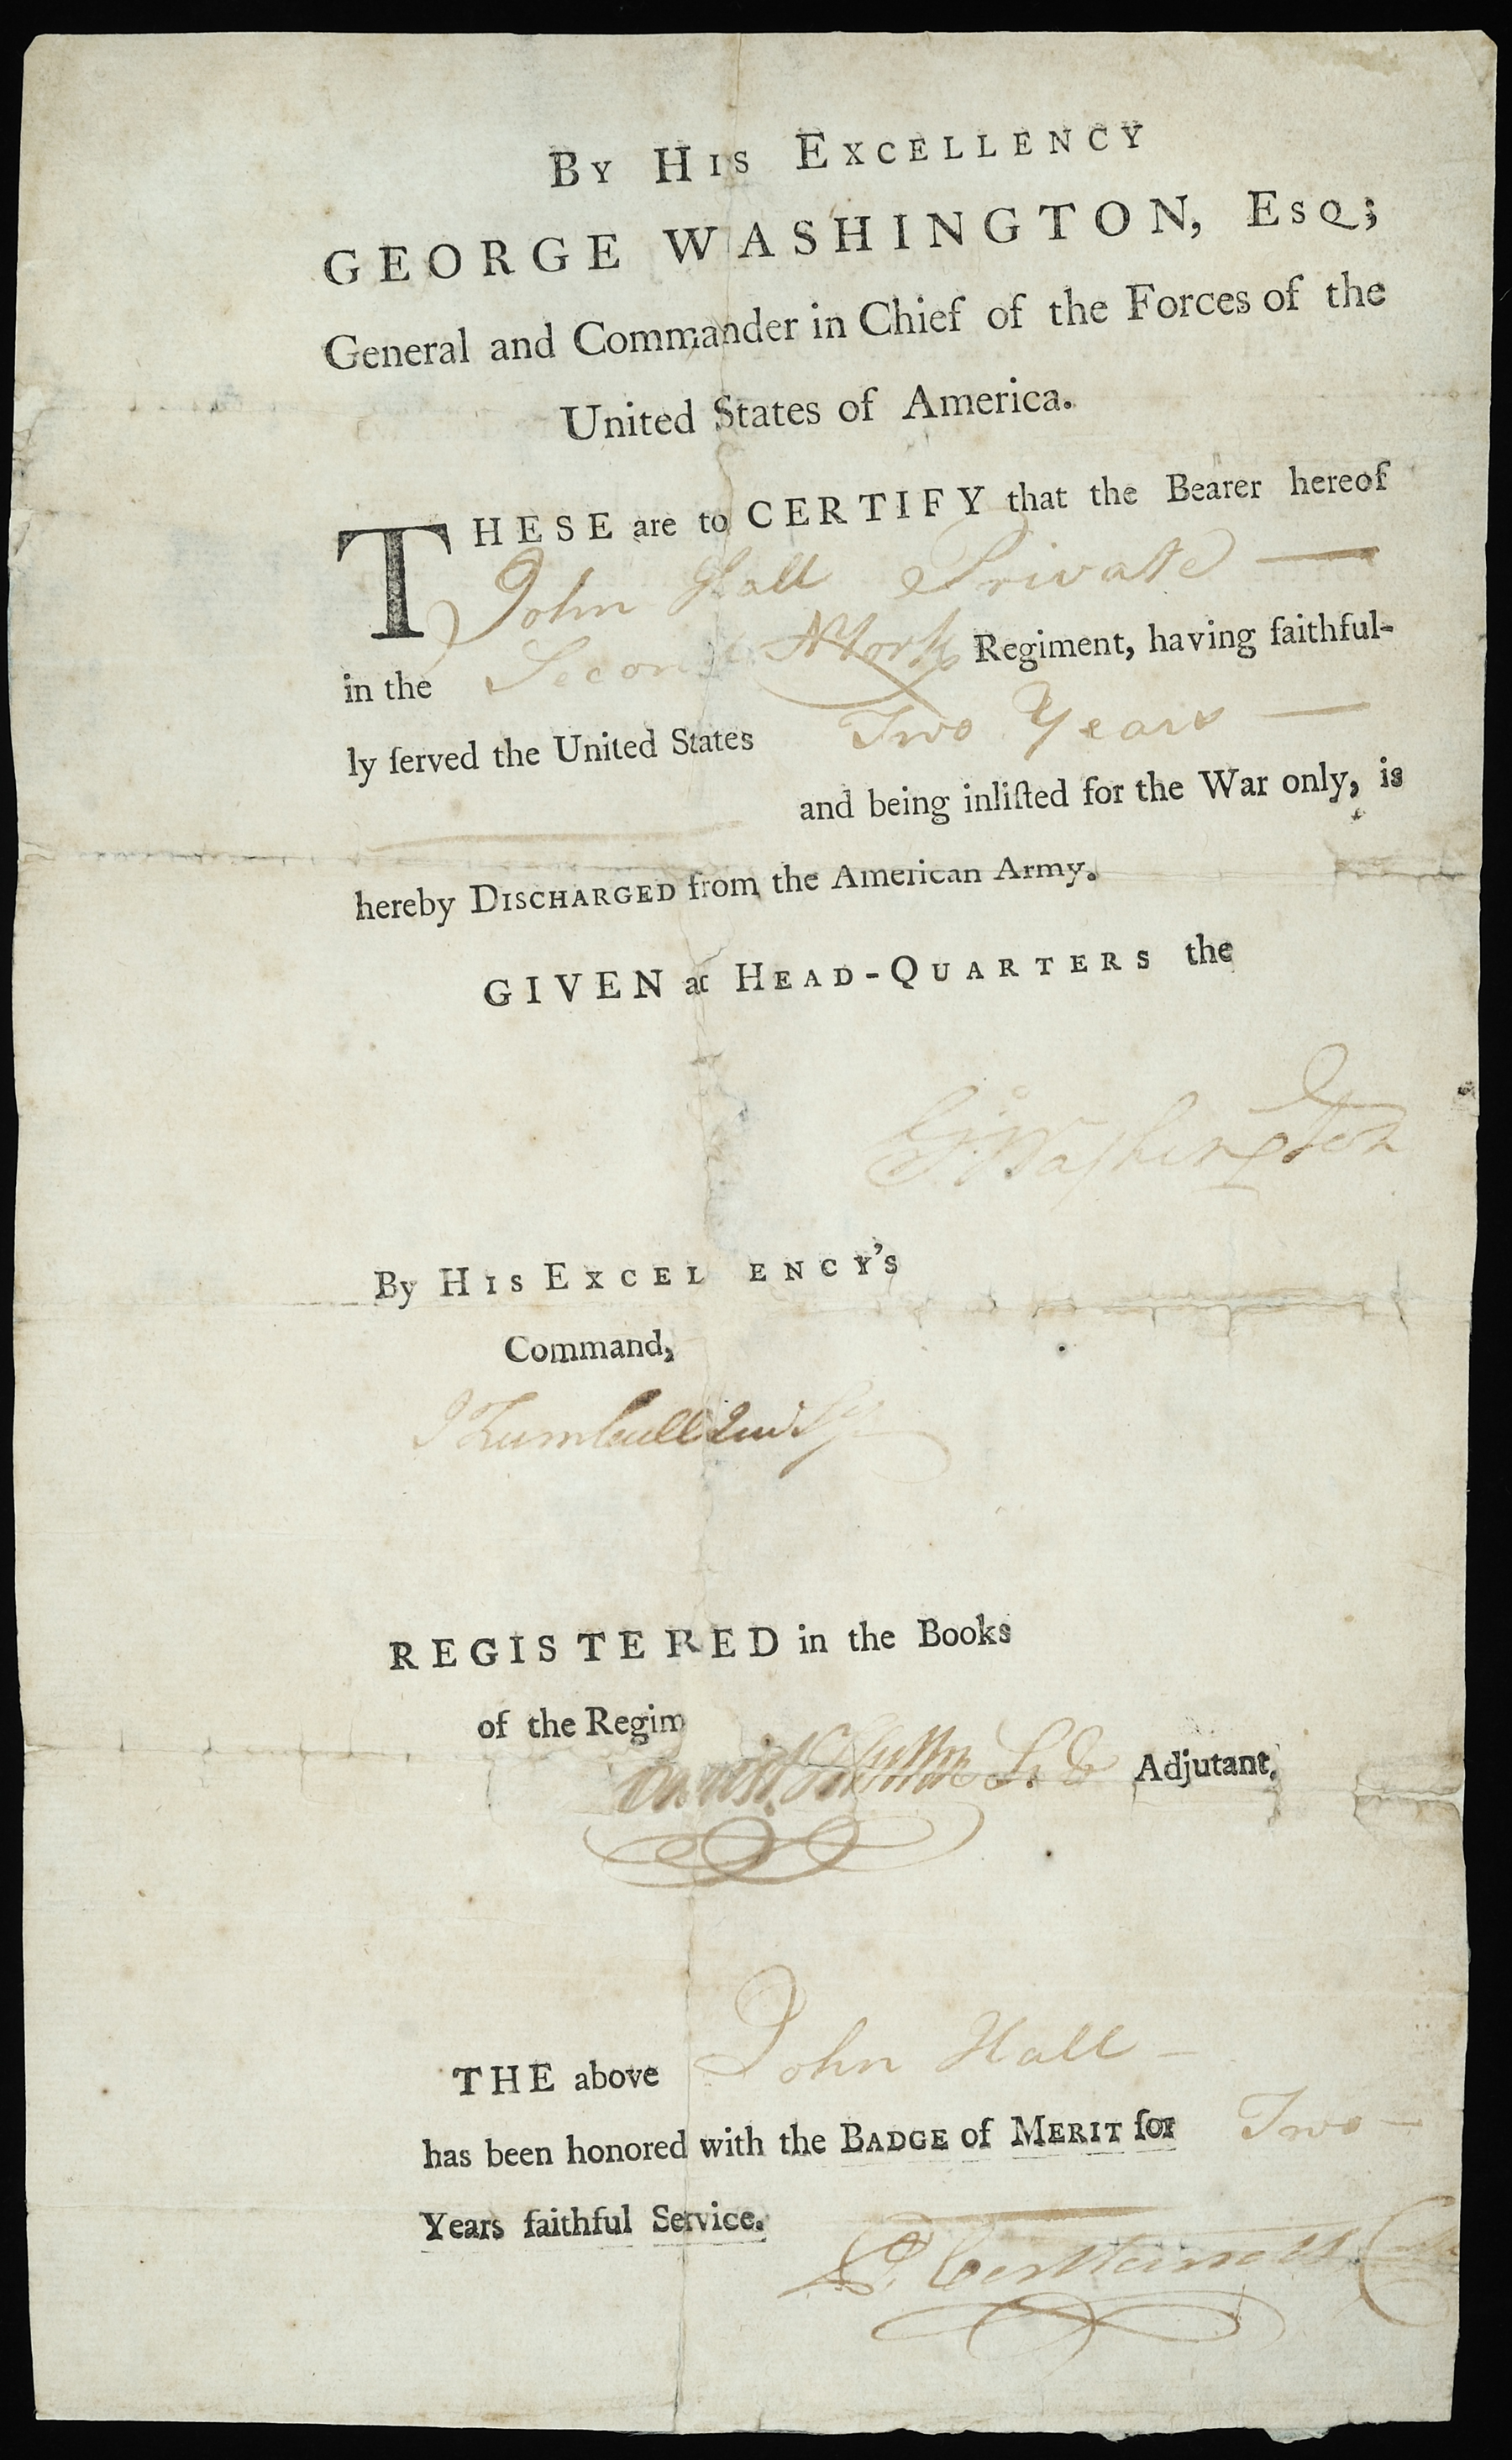 By His Excellency
GEORGE WASHINGTON, Esq;
General and Commander in Chief of the Forces of the
United States of America.
THESE are to CERTIFY that the Bearer hereof
John Hall Private —
in the Second NYork Regiment, having faithful-
ly ſerved the United States Two Years —
and being inliſted for the War only, is
hereby Discharged from the American Army.
GIVEN at Head-Quarters the
Go: Washington
By His Excel ency's
Command,
J Trumbull Junr Sy
REGISTERED in the Books
of the Regim
Adjutant,
THE above John Hall —
has been honored with the Badge of Merit for Two —
Years faithful Service.
P. Cortlandt